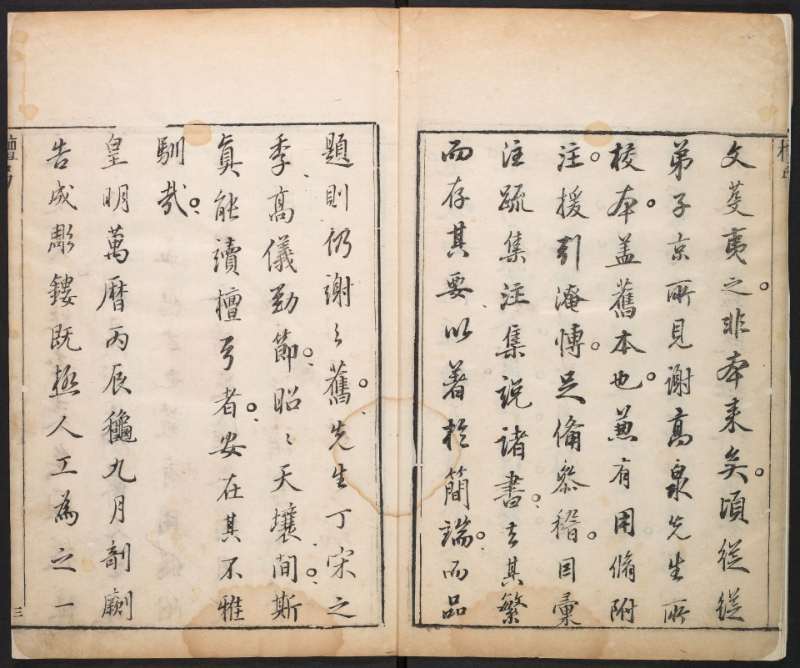 文芟夷之非本來矣頃從從
弟子京所見謝高泉先生所
校本盖舊本也兼有用脩附
注援引淹慱足俻叅稽因彙
注疏集注集說諸書去其繁
而存其要以著於簡端而品
題則仍謝之舊先生丁宋之
季高儀勁節昭〻天壤間斯
真能讀檀弓者安在其不雅
馴哉
皇明萬曆丙辰龝九月剞劂
告成彫鏤既極人工為之一
三